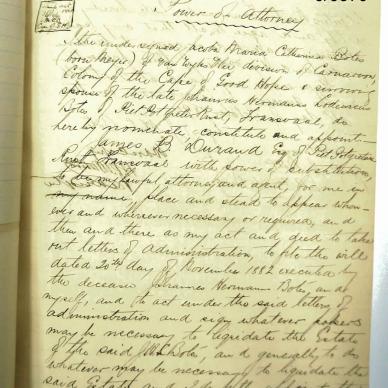 Power of Attorney
I the undersigned, Jacoba Maria Catherina Botes
born Meyer) of Van Wyks Vlei division of Carnarvon,
Colony of the Cape of Good Hope surviving
spouse of the late Johannes Hermanus Lodewicus
Botes of Piet Potgietersrust, Transvaal, do
hereby nominate, constitute and appoint
James B Durand Esq of Piet Potgieters
Rust Transvaal with power of substitution,
to be my lawful attorney and agent, for me in
my name, place and stead to appear when-
ever and wherever necessary or required, and
then and there as my act and deed to take
out letters of Administration, to file the will
dated 20th day of November 1882 executed by
the deceased Johannes Hermann Botes, and
myself, and to act under the said letters of
administration and sign whatever papers
may be necessary to liquidate the Estate
of the said Botes, and generally to do
whatever may be necessary to liquidate the
said Estate and